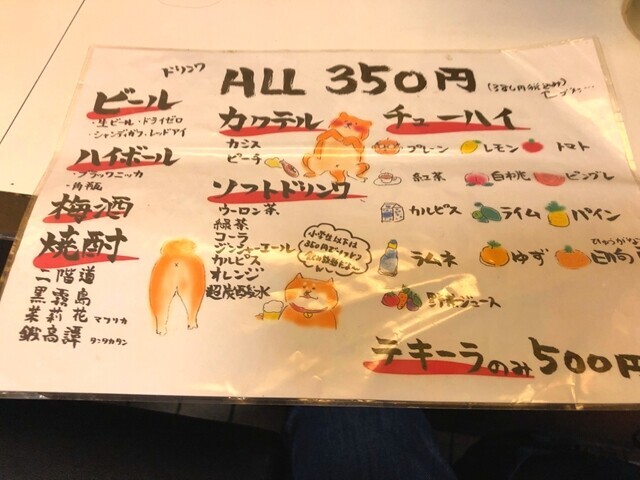 ドリンク
ALL 350円
(385円税込み)
ビール
・生ビール・ドライゼロ
・シャンディガフ・レッドアイ
ハイボール
・ブラックニッカ
・角瓶
梅酒
焼酎
二階道
黒霧島
茉莉花 マツリカ
鍛高譚 タンタカタン
カクテル
カシス
ピーチ
ソフトドリンク
ウーロン茶
緑茶
コーラ
ジンジャーエール
カルピス
オレンジ
超炭酸水
小学生以下は
350円でソフトドリンク
チューハイ
プレーン
レモン
トマト
紅茶
白桃
ピングレ
カルピス
ライム
パイン
ラムネ
ゆず
ひゅうがな
日向
野菜ジュース
テキーラのみ 500円